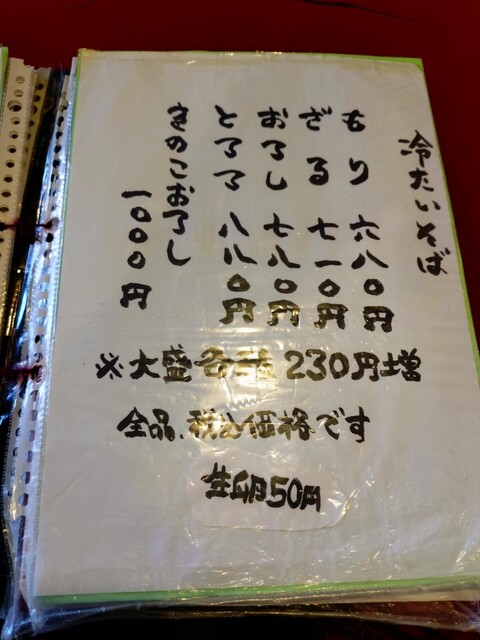 冷たいそば
もり 六八〇円
ざる 七一〇円
おろし 七八〇円
とろろ 八八〇円
きのこおろし
一〇〇〇円
※大盛各種230円増
全品、税込価格です
生卵50円